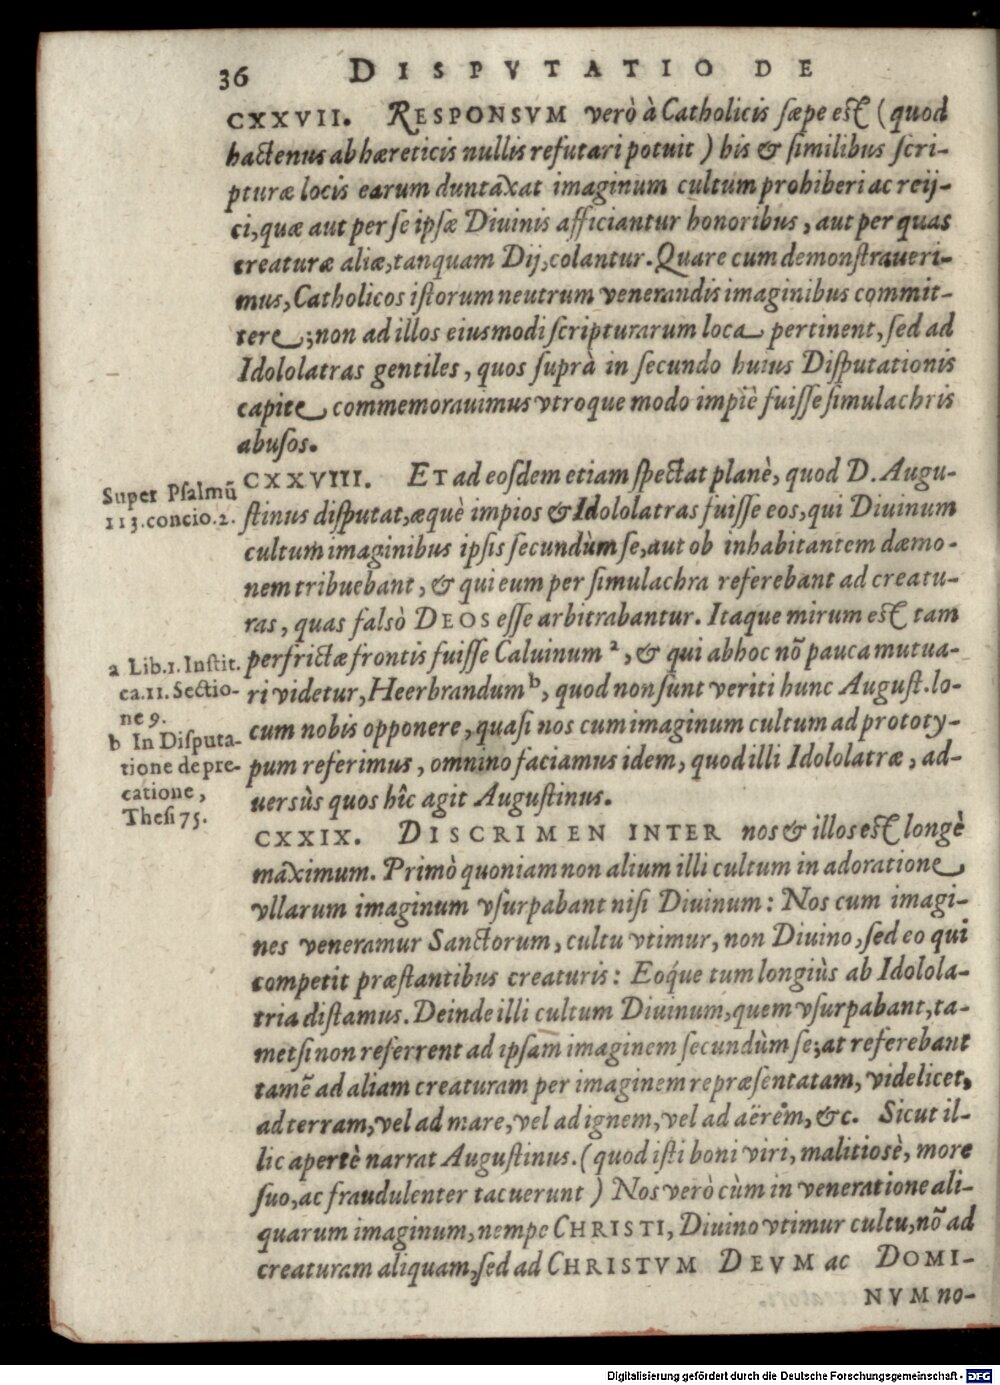 36 DISPVTATIO DE
CXXVII. RESPONSVM verò à Catholicis sæpe est (quod
hactenus ab hæreticis nullis refutari potuit) his & similibus scri-
pturæ locis earum duntaxat imaginum cultum prohiberi ac reij-
ci, quæ aut per se ipsæ Diuinis afficiantur honoribus, aut per quas
creaturæ aliæ, tanquam Dij, colantur. Quare cum demonstraueri-
mus, Catholicos istorum neutrum venerandis imaginibus commit-
tere; non ad illos eiusmodi scripturarum loca pertinent, sed ad
Idololatras gentiles, quos suprà in secundo huius Disputationis
capite commemorauimus vtroque modo impiè fuisse simulachris
abusos.
CXXVIII. ET ad eosdem etiam spectat planè, quod D. Augu-
stinus disputat, æquè impios & Idololatras fuisse eos, qui Diuinum
cultum imaginibus ipsis secundùm se, aut ob inhabitantem dæmo-
nem tribuebant, & qui eum per simulachra referebant ad creatu-
ras, quas falsò DEOS esse arbitrabantur. Itaque mirum est tam
perfrictæ frontis fuisse Caluinum ᵃ, & qui ab hoc nõ pauca mutua-
ri videtur, Heerbrandum ᵇ, quod non sunt veriti hunc August. lo-
cum nobis opponere, quasi nos cum imaginum cultum ad prototy-
pum referimus, omnino faciamus idem, quod illi Idololatræ, ad-
uersùs quos hîc agit Augustinus.
CXXIX. DISCRIMEN INTER nos & illos est longè
maximum. Primò quoniam non alium illi cultum in adoratione
vllarum imaginum vsurpabant nisi Diuinum: Nos cum imagi-
nes veneramur Sanctorum, cultu vtimur, non Diuino, sed eo qui
competit præstantibus creaturis: Eoque tum longiùs ab Idolola-
tria distamus. Deinde illi cultum Diuinum, quem vsurpabant, ta-
metsi non referrent ad ipsam imaginem secundùm se; at referebant
tamē ad aliam creaturam per imaginem repræsentatam, videlicet,
ad terram, vel ad mare, vel ad ignem, vel ad aërem, &c. Sicut il-
lic apertè narrat Augustinus. (quod isti boni viri, malitiosè, more
suo, ac fraudulenter tacuerunt) Nos verò cùm in veneratione ali-
quarum imaginum, nempe CHRISTI, Diuino vtimur cultu, nõ ad
creaturam aliquam, sed ad CHRISTVM DEVM ac DOMI-
NVM no-
Super Psalmũ
113. concio. 2.
a Lib. 1. Instit.
ca. 11. Sectio-
ne 9.
b In Disputa-
tione de pre-
catione,
Thesi 75.
Digitalisierung gefördert durch die Deutsche Forschungsgemeinschaft - DFG